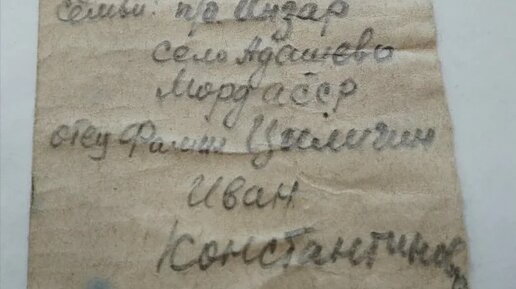 семьи: п/о Инзар
село Адашево
Морд АССР
отец Фамил Цыличин
Иван
Константинов